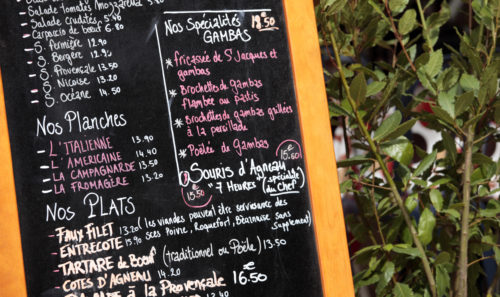 Salade Tomate (Mozzarella
Salade Crudités 5.40
Carpaccio de Boeuf
S. Fermière 12.90
S. Bergère
S. Provençale 13.50
S. Niçoise 13.20
S. Océane 14.50
Nos Planches
L'ITALIENNE 13.90
L'AMERICAINE 14.40
LA CAMPAGNARDE 13.50
LA FROMAGÈRE 13.20
Nos Spécialités
GAMBAS
* Fricassée de St Jacques et
gambas
* Brochettes de gambas
flambée au pastis
* Brochettes de gambas grillées
à la persillade
* Poêlée de gambas
15.60
* Souris d'Agneau
15.50
"7 Heures" (spécialité
du Chef)
Nos PLATS
FAUX FILET 13.20 (les viandes peuvent être servies avec des
ENTRECOTE 15.90 sces Poivre, Roquefort, Béarnaise sans
Supplément)
TARTARE de Boeuf (traditionnel ou Poêlé) 13.50
COTES D'AGNEAU 14.20
à la Provençale 16.50